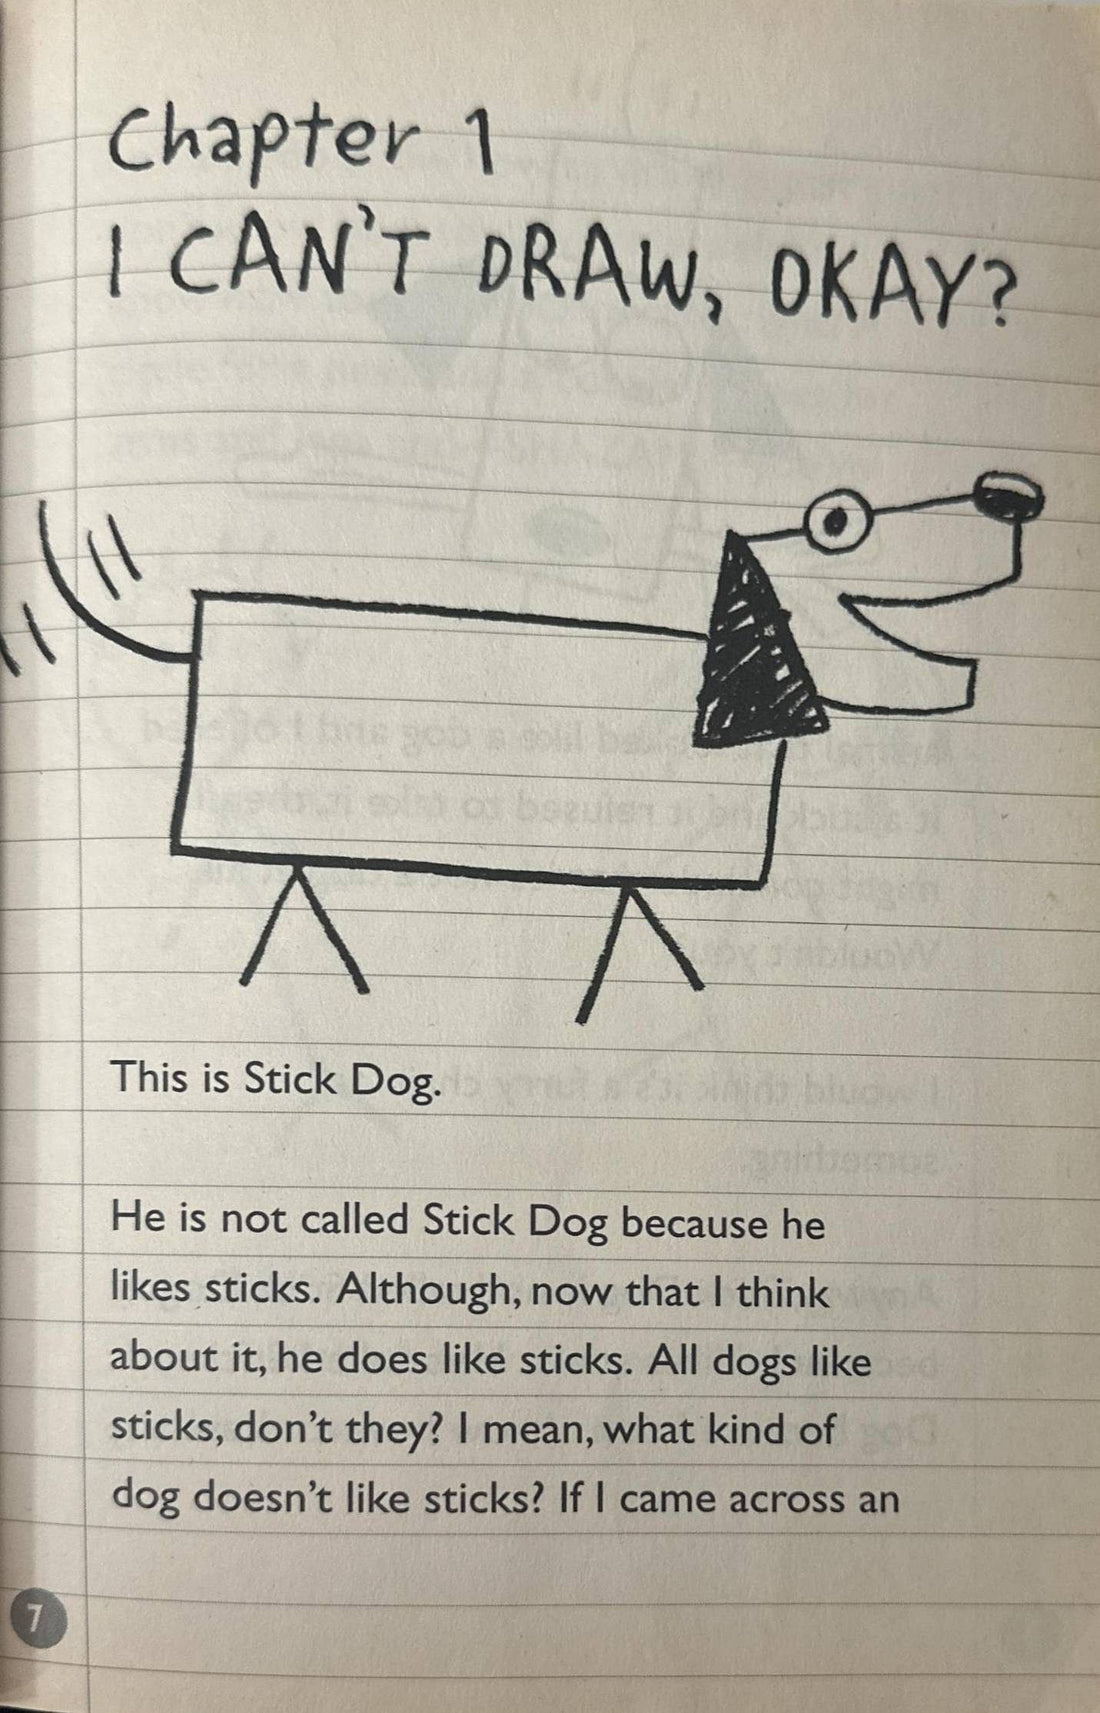 Chapter 1
I CAN'T DRAW, OKAY?
This is Stick Dog.
He is not called Stick Dog because he
likes sticks. Although, now that I think
about it, he does like sticks. All dogs like
sticks, don't they? I mean, what kind of
dog doesn't like sticks? If I came across an
7